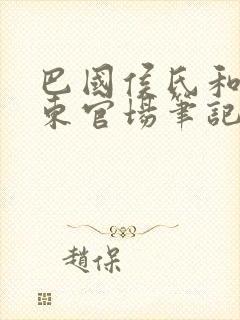 巴國侯氏和
東官場筆記
趙保